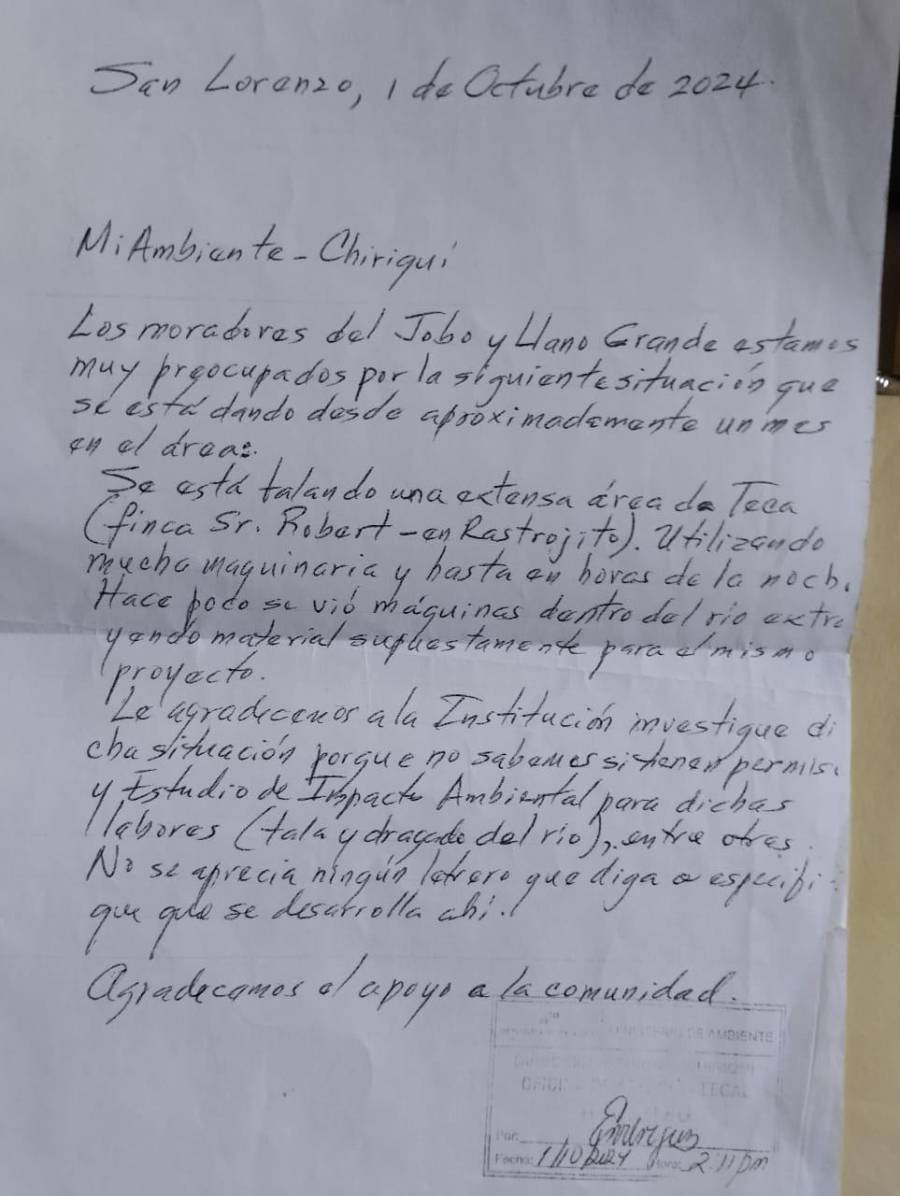 San Lorenzo, 1 de Octubre de 2024.
MiAmbiente - Chiriquí
Los moradores del Jobo y Llano Grande estamos
muy preocupados por la siguiente situación que
se está dando desde aproximadamente un mes
en el área:
Se está talando una extensa área de Teca
(finca Sr. Robert - en Rastrojito). Utilizando
mucha maquinaria y hasta en horas de la noch.
Hace poco se vió máquinas dentro del río extra
yendo material supuestamente para el mismo
proyecto.
Le agradecemos a la Institución investigue di
cha situación porque no sabemos si tienen permiso
y Estudio de Impacto Ambiental para dichas
labores (tala y dragado del río), entre otras.
No se aprecia ningún letrero que diga o especifi
que que se desarrolla ahí.
Agradecemos el apoyo a la comunidad.
MINISTERIO DE AMBIENTE
LEGAL
Por:
Fecha: 1/10/2024 Hora: 2:11 pm